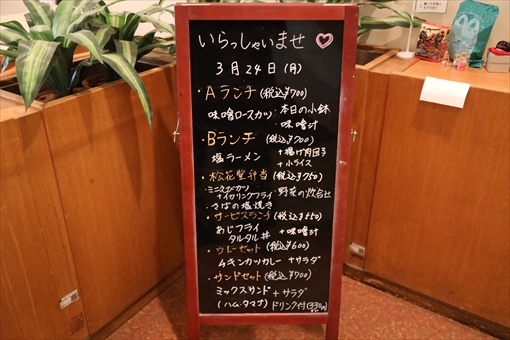 いらっしゃいませ
3月24日(月)
・Aランチ(税込¥700)
味噌ロースカツ 本日の小鉢
・味噌汁
・Bランチ(税込¥700)
塩ラーメン +揚げ肉団子
+小ライス
・松花堂弁当(税込¥750)
ミニえびカツ
+イカリングフライ ・野菜の炊合せ
・さばの塩焼き
・サービスランチ(税込¥550)
あじフライ
タルタル丼 +味噌汁
・カレーセット(税込¥600)
チキンカツカレー+サラダ
・サンドセット(税込¥700)
ミックスサンド+サラダ
(ハム・タマゴ)ドリンク付